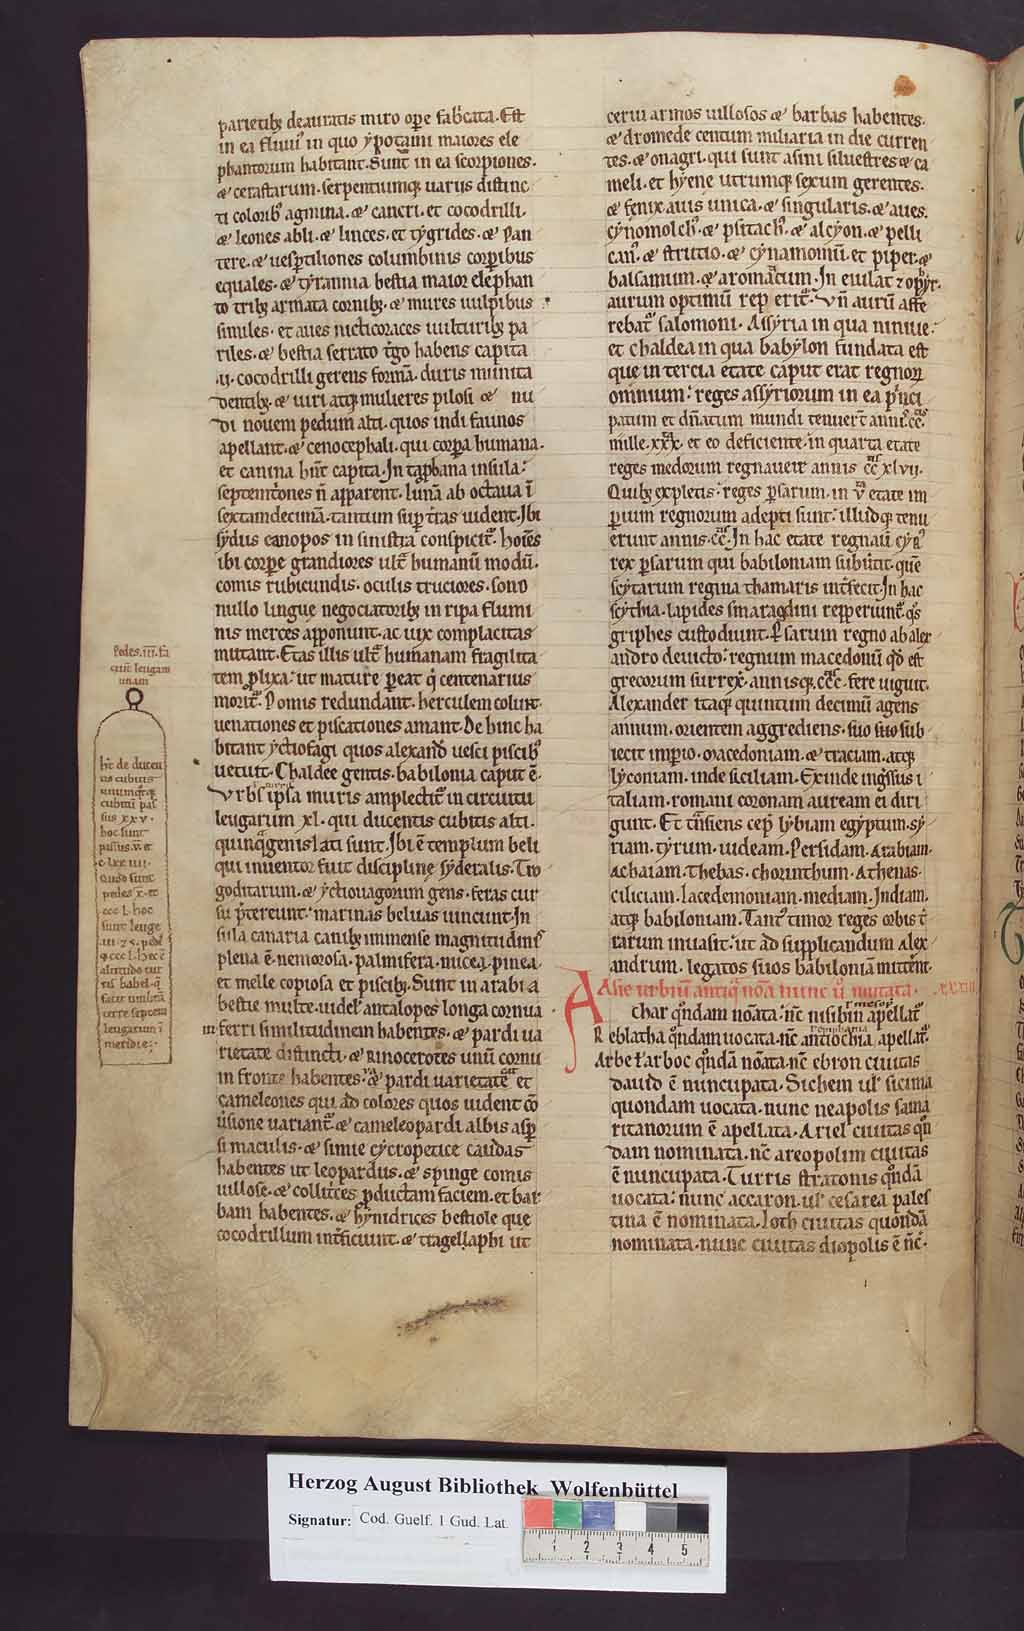 parietibꝫ deauratis miro oꝑe fab̾cata. Est
in ea fluuiꝰ in quo ẏpotami maiores ele
phantorum habitant. Sunt̄ in ea scorpiones.
⁊ cerastarum. serpentiumqꝫ uariis distinc
ti coloribꝰ agmina. ⁊ cancri. et cocodrilli.
⁊ leones albi. ⁊ linces. et tẏgrides. ⁊ Pan
tere. ⁊ uesꝑtiliones columbinis corꝑibus
equales. ⁊ tẏrannia bestia maior elephan
to tribꝫ armata cornibꝫ. ⁊ mures uulpibus
similes. et aues nicticoraces uulturibꝫ pa
riles. ⁊ bestia serrato t̾go habens capita
.ii. cocodrilli gerens formā. duris munita
dentibꝫ. ⁊ uiri atqꝫ mulieres pilosi ⁊ nu
di nouem pedum alti. quos indi faunos
apellant. ⁊ cenocephali. qui corꝑa humana.
et canina hn̄t capita. In taphana insula.
septemt̾ones n̄ apparent. lunā ab octaua ī
sextamdecimā. tantum suꝑ t̾ras uident. Ibi
sẏdus canopos in sinistra conspicit᷑. hoīes
ibi corꝑe grandiores ult̾ humanū modū.
comis rubicundis. oculis truciores. sono
nullo lingue negociatoribꝫ in ripa flumi
nis merces apponunt. ac uix complacitas
mutant. Etas illis ult̾ humanam fragilita
tem ꝓlixa: ut mature ꝑeat qͥ centenarius
morit᷑. Pomis redundant. herculem colunt.
uenationes et piscationes amant. De hinc ha
bitant ẏctiofagi quos alexand̾ uesci piscibꝰ
uetuit. Chaldee gentis. babilonia caput ē.
Vrbs ipsa muris amplectit᷑ in circuitu
leugarum xl. qui ducentis cubitis alti.
quinqͣgenis lati sunt. Ibi ē templum beli
qui inuentor fuit discipline sẏderalis. Tro
goditarum. ⁊ ẏctiouagorum gens. feras cur
su p̄tereunt. marinas beluas uincunt. In
sula canaria canibꝫ immense magnitudinis
plena ē. nemorosa. palmifera. nucea. pinea.
et melle copiosa et piscibꝫ. Sunt in arabia
bestie multe. uidelꝫ antalopes longa cornua
ferri similitudinem habentes. ⁊ pardi ua
rietate distincti. ⁊ Rinocerotes unū cornu
in fronte habentes. ⁊ pardi uarietatē et
cameleones qui ad colores quos uident cō
u̾sione uariant᷑. ⁊ cameleopardi albis asꝑ
si maculis. ⁊ simie cẏcropetice caudas
habentes ut leopardus. ⁊ spinge comis
uillose. ⁊ collit̾ces ꝓductam faciem. et bar
bam habentes. ⁊ hẏnidrices bestiole que
cocodrillum int̾ficiunt. ⁊ tragelaphi ut
Pedes .iii. fa
ciūt leugam
unam
ht̄ de ducen
tis cubitis
unumqͣqꝫ
cubitū pas
sus xxv.
hoc sunt
passus .v. et
Quod sunt
pedes x. et
cccl. hoc
sunt leuge
altitudo tur
ris babel. qͣ
leugarum ī
meridie.
cerui armos uillosos ⁊ barbas habentes.
⁊ dromede centum miliaria in die curren
tes. ⁊ onagri. qui sunt asini siluestres ⁊ ca
meli. et hẏene utrumqꝫ sexum gerentes.
⁊ fenix auis unica. ⁊ singularis. ⁊ aues.
cẏnomolchꝰ. ⁊ psitachꝰ. ⁊ alcẏon. ⁊ pelli
canꝰ. ⁊ strutio. ⁊ cẏnamomū. et piper. ⁊
balsamum. ⁊ aromacum. In euilat ⁊ ophẏr.
aurum optimū reperit᷑. Vn̄ aurū affe
rebat᷑ salomoni. Assẏria in qua niniue.
et chaldea in qua babẏlon fundata est
que in tercia etate caput erat regnoꝝ
omnium: reges assẏriorum in ea pͥnci
patum et dn̄atum mundi tenuer̄t annis
mille.xxx. et eo deficiente. in quarta etate
reges medorum regnauer̄t annis cc xlvii.
Quibꝫ expletis. reges ꝑsarum. in v etate im
ꝑium regnorum adepti sunt. illudqꝫ tenu
erunt annis. cc. In hac etate regnauī cẏrꝰ
rex ꝑsarum qui babiloniam subu̾tit. quē
scẏtarum regina thamaris int̾fecit. In hac
scẏthia. lapides smaragdini repperiunt᷑. qͦs
griphes custodiunt. Persarum regno ab alex
andro deuicto: regnum macedonū qd̄ est
grecorum surrex̄. annisqꝫ.ccc. fere uiguit.
Alexander itaqꝫ quintum decimū agens
annum. orientem aggrediens. suo suo sub
iecit impio. macedoniam. ⁊ traciam. atqꝫ
lẏconiam. inde siciliam. Exinde ing̾ssus i
taliam. romani coronam auream ei diri
gunt. Et t̾nsiens cep̄ lẏbiam egẏptum. sẏ
riam. tẏrum. iudeam. Persidam. Arabiam.
Achaiam. Thebas. chorinthum. Athenas.
ciliciam. lacedemoniam. mediam. Indiam.
atqꝫ babiloniam. Tantꝰ timor reges orbis t̄
rarum inuasit. ut ad supplicandum Alex
andrum. legatos suos babiloniā mitter̄nt.
Asie urbiū antiqͣ noīa nunc ū mutata. xxxiii
Achar qͦndam noīata: nc̄ nisibin apellat᷑
Reblatha qͦndam uocata. nc̄ antiochia apellat᷑.
Arbe ł arboc qͦndā noīata. nc̄ ebron ciuitas
dauid ē nuncupata. Sichem ul̾ sicima
quondam uocata. nunc neapolis sama
ritanorum ē apellata. Ariel ciuitas qͦn
dam nominata. nc̄ areopolim ciuitas
ē nuncupata. Turris stratonis qͦndā
uocata: nunc accaron. ul̾ cesarea pales
tina ē nominata. Loth ciuitas quondā
nominata. nunc ciuitas diopolis ē nc̄.
Herzog August Bibliothek Wolfenbüttel
Signatur: Cod. Guelf. 1 Gud. Lat.
1 2 3 4 5